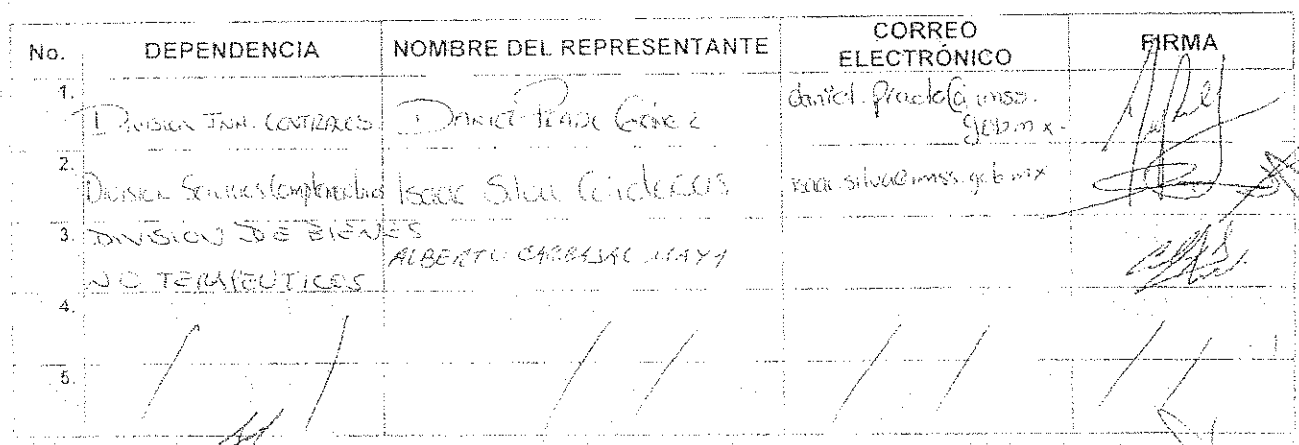 No. DEPENDENCIA NOMBRE DEL REPRESENTANTE CORREO ELECTRÓNICO FIRMA
1. División INN. CONTRALES Daniel Prado Gómez daniel.prado@imss.gob.mx
2. División Servicios Complementarios Isaac Silva Cárdenas isaac.silva@imss.gob.mx
3. DIVISION DE BIENES
NO TERAPEUTICOS ALBERTO CARBAJAL MAYA
4.
5.